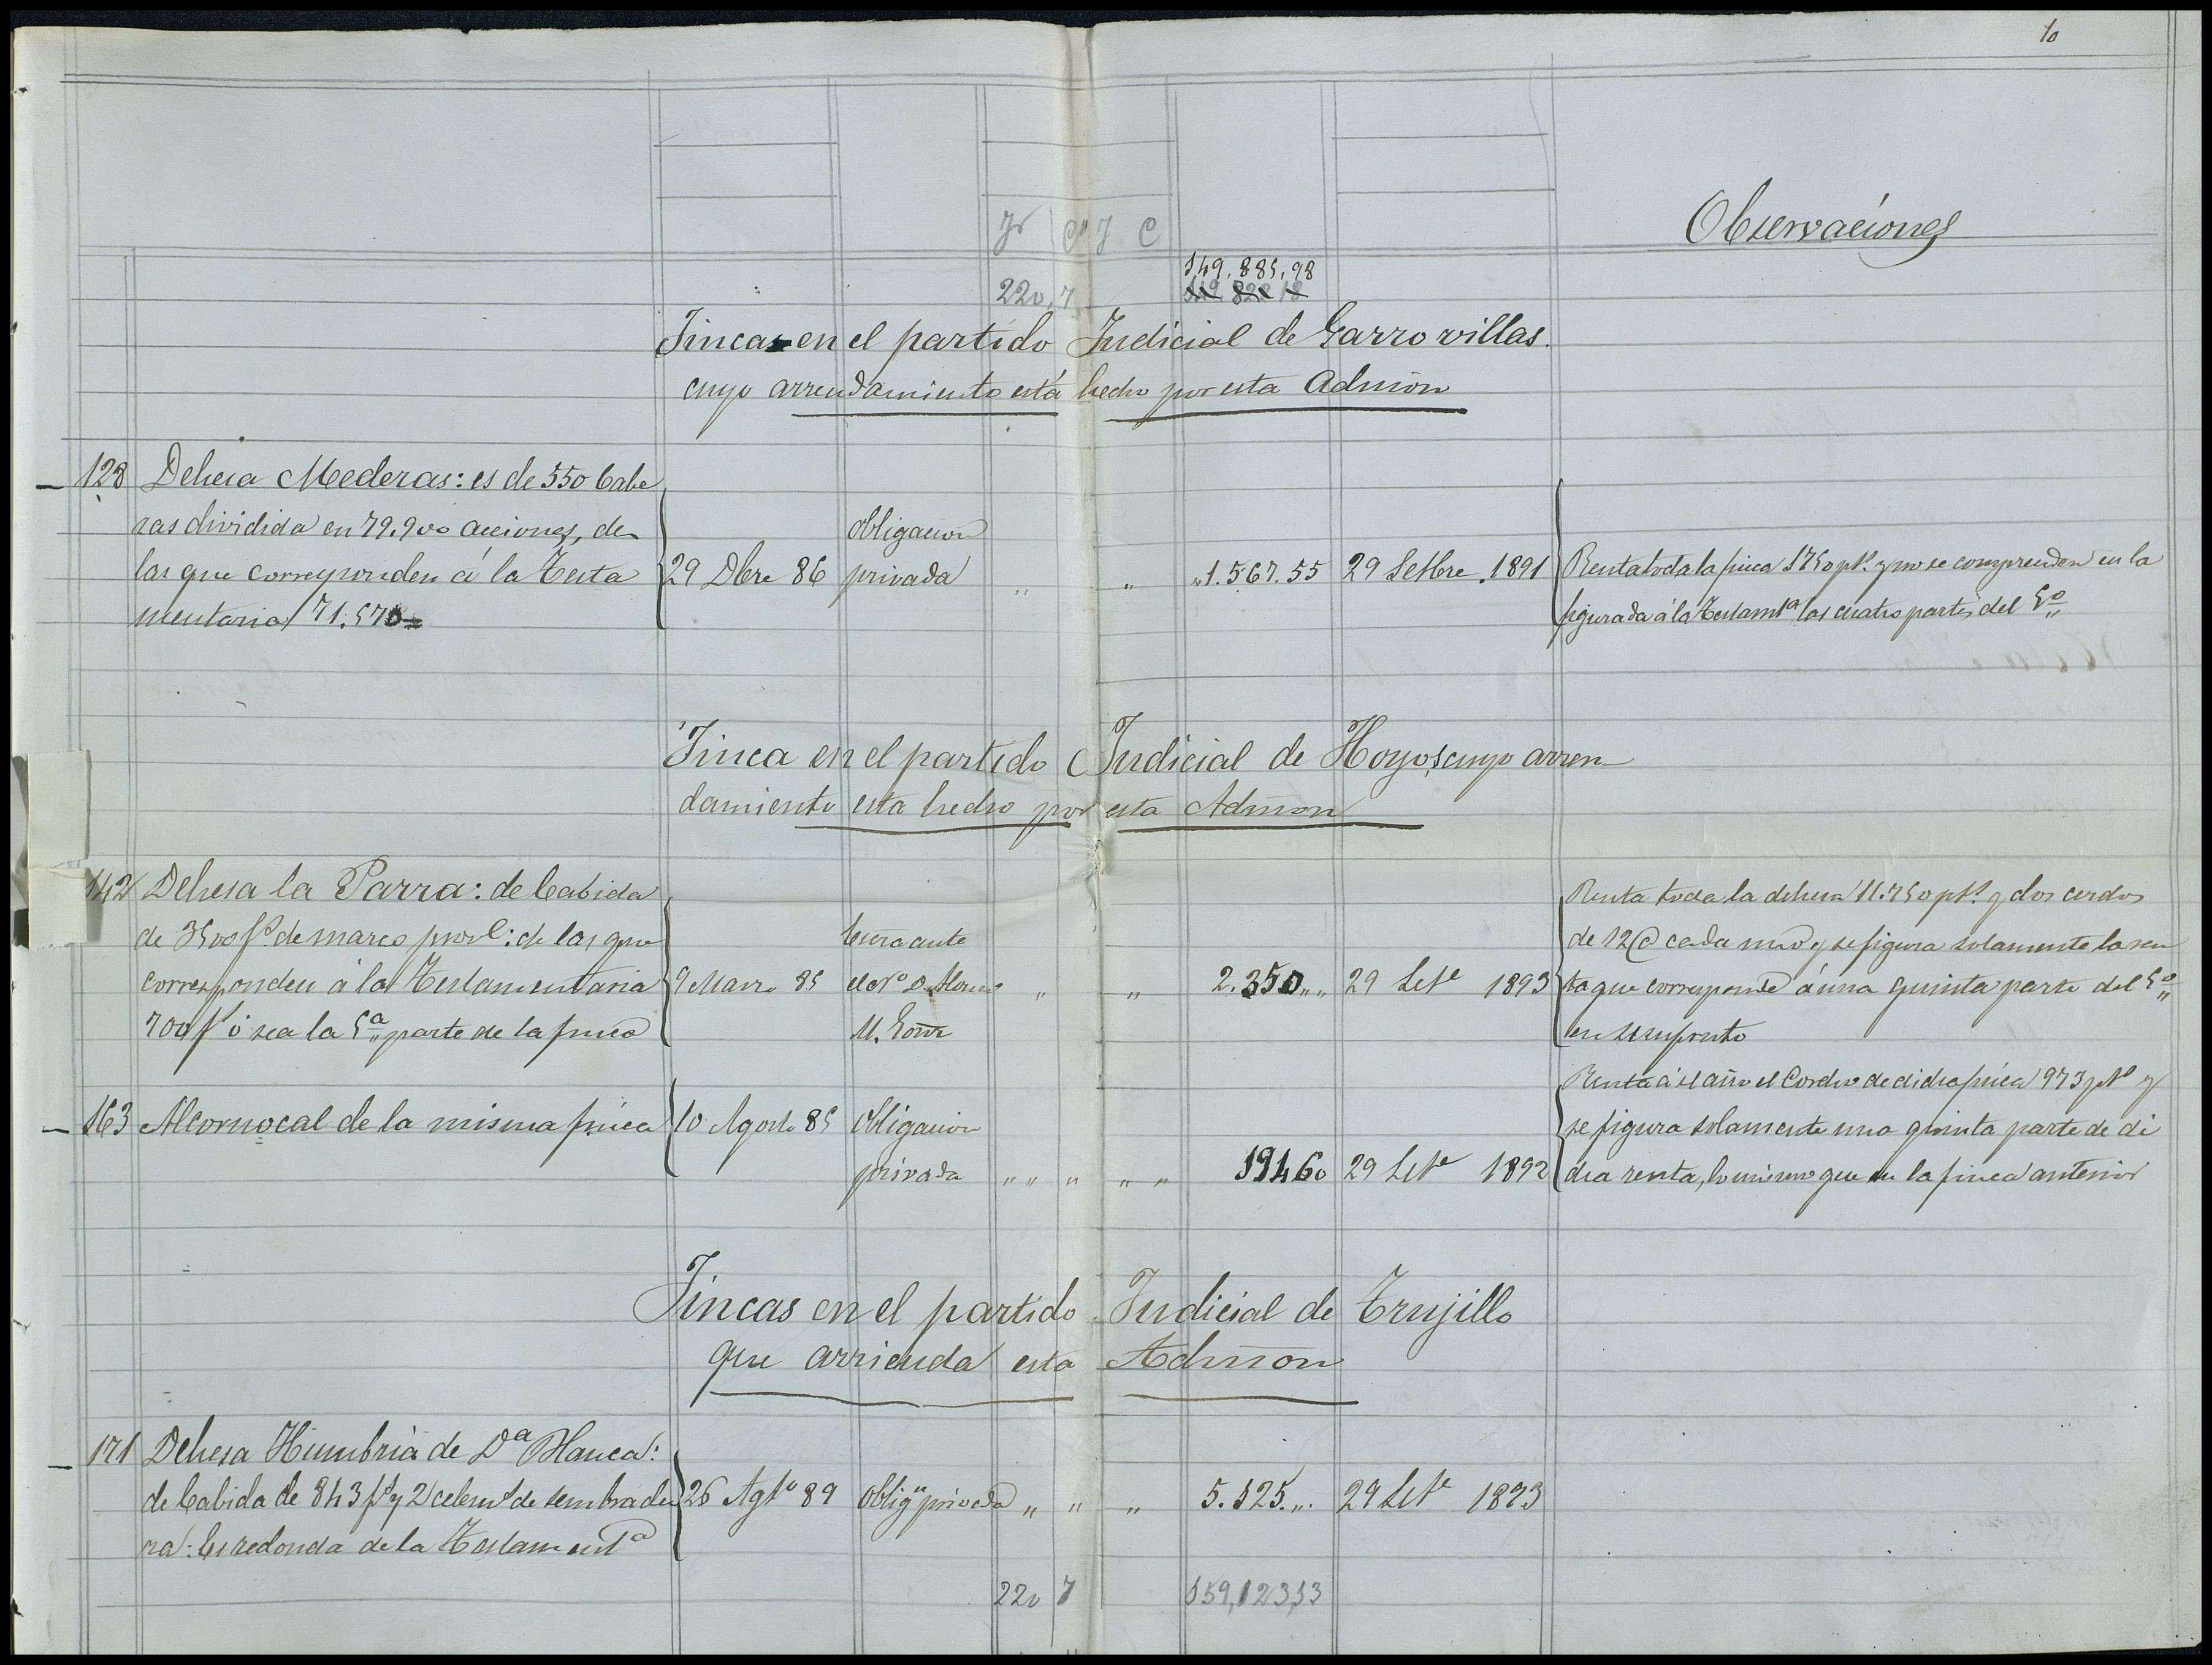 10
Observaciones
Fr C Y C
149.885,98
220, 7
Fincas en el partido Judicial de Garrovillas
cuyo arrendamiento está hecho por esta Admón
128 Dehesa Mederas: es de 550 Cabe
zas dividida en 79.900 acciones, de
las que corresponden á la Testa
mentaria 71.570
29 Dbre 86
obligacion
privada
" " " 1.567.55 29 Setbre. 1891
Renta toda la finca 1750 pts. y no se comprenden en la
figurada á la Testamta. las cuatro partes del 5º
Finca en el partido Judicial de Hoyos, cuyo arren
damiento esta hecho por esta Admon
142 Dehesa la Parra: de Cabida
de 3500 fs. de marco provl: de las que
corresponden á la Testamentaria
700 fs ó sea la 5ª parte de la finca
9 Marzo 85
Escra ante
el No. D.
M.
" " 2.350 " " 29 Set.e 1893
Renta toda la dehesa 11.750 pts. y dos cerdos
de 12 @ cada uno y se figura solamente la ren
ta que corresponde á una quinta parte del 5º
163 Alcornocal de la misma finca
10 Agosto 85
Obligacion
privada
" " " " " 194 60 29 Set.e 1892
Renta á el año el Corcho de dicha finca 973 pts y
se figura solamente una quinta parte de di
cha renta, lo mismo que en la finca anterior
Fincas en el partido Judicial de Trujillo
que arrienda esta Admñon
171 Dehesa Humbria de Dª Blanca:
de Cabida de 843 fs y 2 celems de sembradu
ra: Es redonda de la Testamentª
26 Agto 89 oblign privada " " " 5.125 " . 29 Set.e 1893
220 7 159,123,13